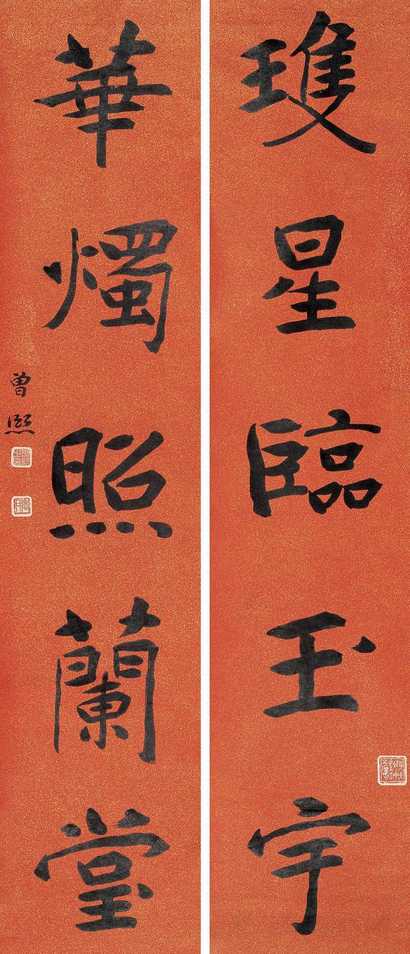 星臨玉宇
華燭照蘭堂
曾熙